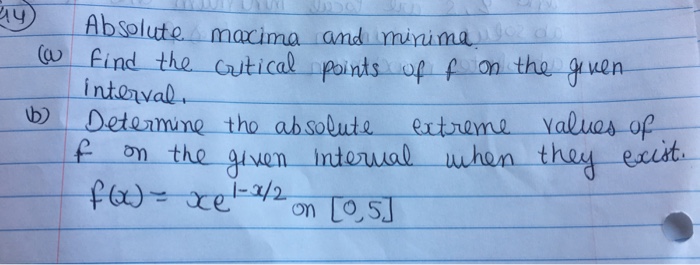 14) Absolute maxima and minima.
(a) Find the critical points of f on the given
interval.
b) Determine the absolute extreme values of
f on the given interval when they exist.
f(x) = xe^{1-x/2} on [0,5]